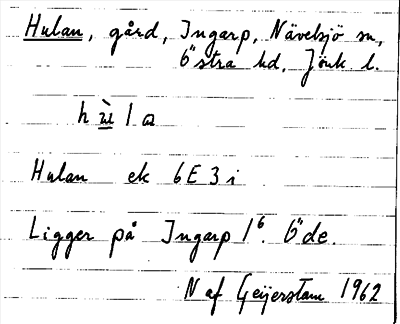 Hulan, gård, Ingarp, Nävelsjö sn,
Östra hd, Jönk l.
h ù l a
Hulan ek 6E3i
Ligger på Ingarp 1⁶. Öde.
N af Geijerstam 1962